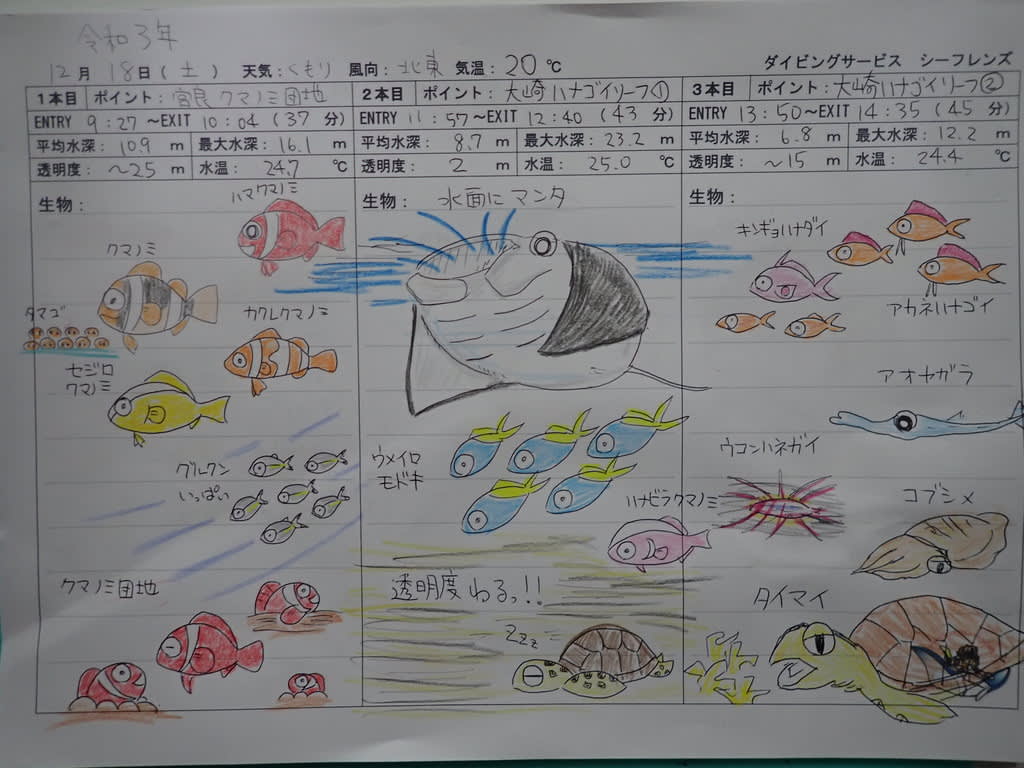 令和3年
12月 18日(土) 天気:くもり 風向:北東 気温:20℃
ダイビングサービス シーフレンズ
1本目 ポイント:宮良クマノミ団地
ENTRY 9:27～EXIT 10:04(37分)
平均水深:10.9 m 最大水深:16.1 m
透明度:～25 m 水温:24.7 ℃
生物:
ハマクマノミ
クマノミ
タマゴ
カクレクマノミ
セジロ
クマノミ
グルクン
いっぱい
クマノミ団地
2本目 ポイント:大崎ハナゴイリーフ①
ENTRY 11:57～EXIT 12:40(43分)
平均水深:8.7 m 最大水深:23.2 m
透明度:2 m 水温:25.0 ℃
生物:
水面にマンタ
ウメイロ
モドキ
ハナビラクマノミ
透明度わるっ!!
Zzzz
3本目 ポイント:大崎ハナゴイリーフ②
ENTRY 13:50～EXIT 14:35(45分)
平均水深:6.8 m 最大水深:12.2 m
透明度:～15 m 水温:24.4 ℃
生物:
キンギョハナダイ
アカネハナゴイ
アオヤガラ
ウコンハネガイ
コブシメ
タイマイ